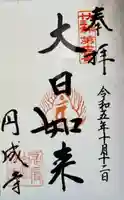 奉拝
令和五年十月十二日
大日如来
円成寺